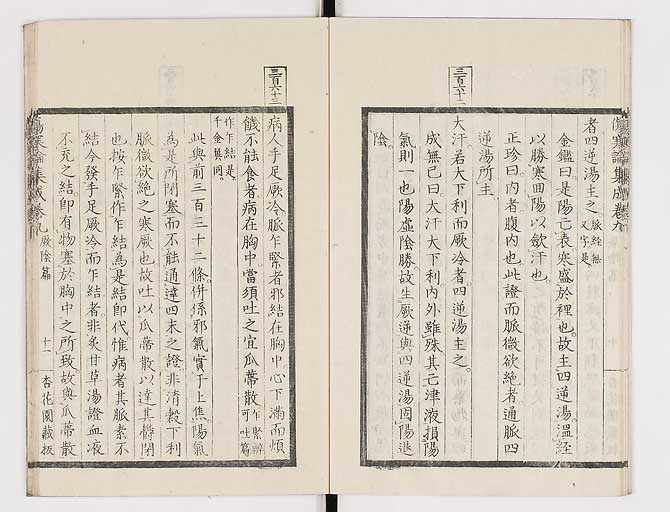 傷寒論集成卷九
者四逆湯主之脈經無又字是
金鑑曰是陽亡表寒盛於裡也故主四逆湯溫經
以勝寒回陽以斂汗也
正珍曰內者腹內也此證而脈微欲絶者通脈四
逆湯所主
三百六十二
大汗若大下利而厥冷者四逆湯主之
成無已曰大汗大下利內外雖殊其亡津液損陽
氣則一也陽虛陰勝故生厥逆與四逆湯固陽退
陰
三百六十三
病人手足厥冷脈乍緊者邪結在胸中心下滿而煩
饑不能食者病在胸中當須吐之宜瓜蔕散乍緊辨可吐篇
作乍結是千金翼同
此與前三百三十二條併係邪氣實于上焦陽氣
為是所閉塞而不能通達四末之證非清穀下利
脈微欲絶之寒厥也故吐以瓜蔕散以達其鬱閉
也按乍緊作乍結為是結即代惟病者其脈素不
結今發手足厥冷而乍結者非炙甘草湯證血液
不充之結即有物塞於胸中之所致故與瓜蔕散
傷寒論集成卷九 厥陰篇 十一 杏花園藏板